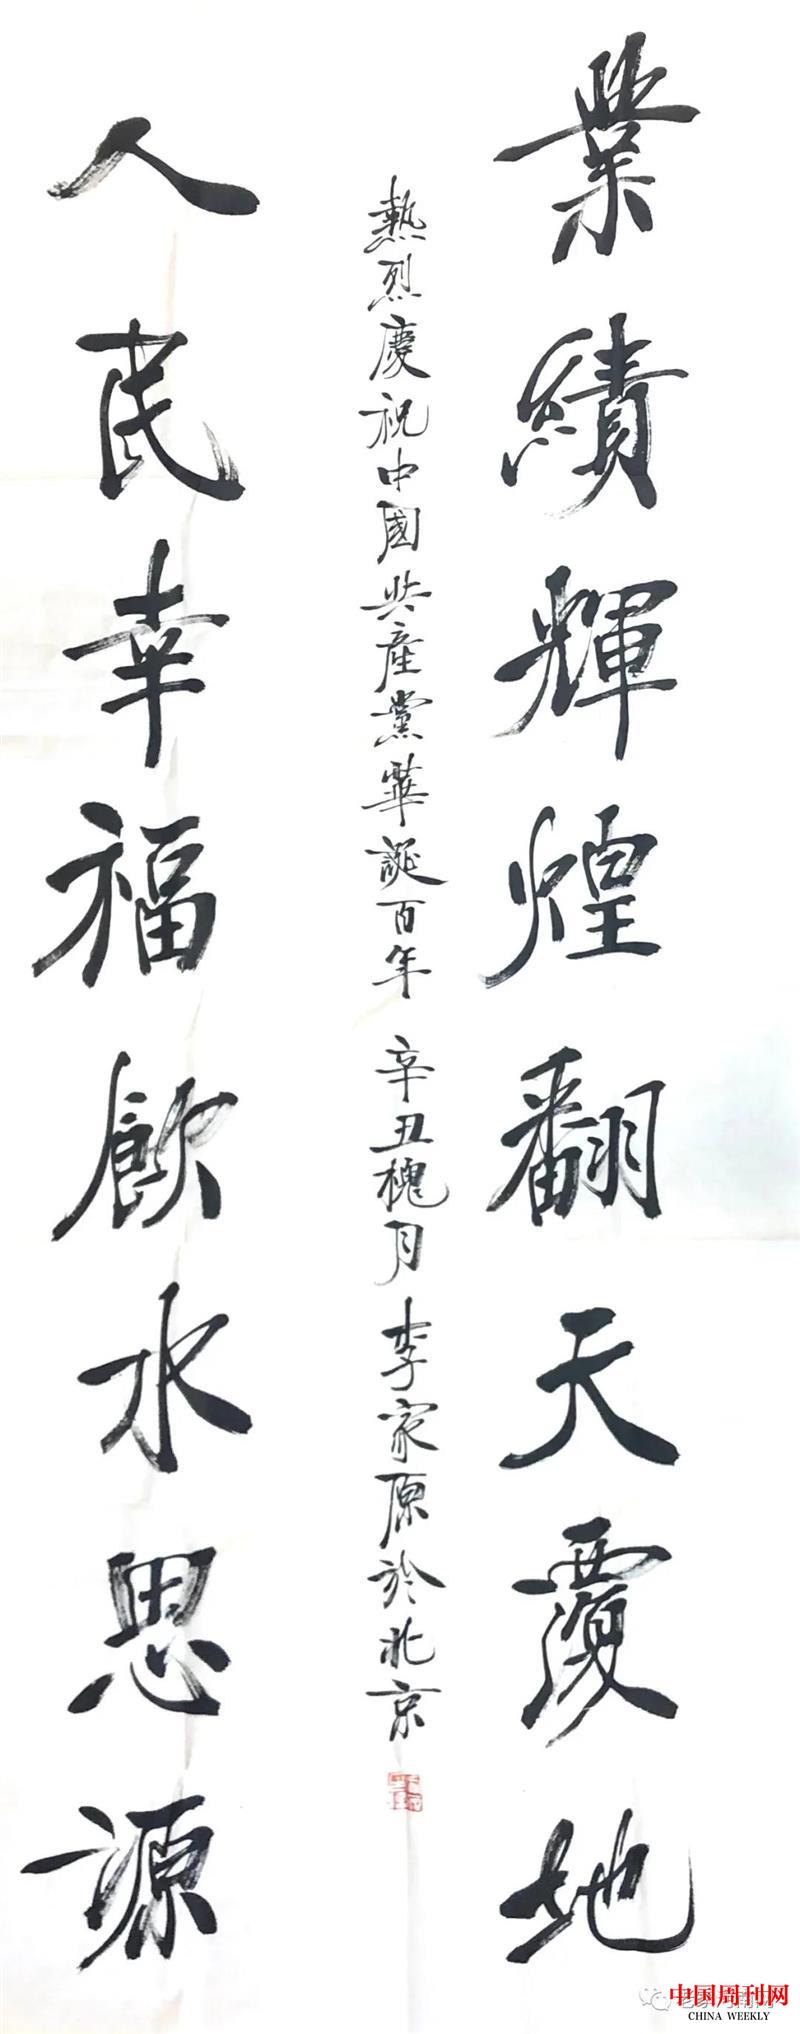 業績輝煌翻天覆地
熱烈慶祝中國共產黨華誕百年 辛丑槐月 李家原於北京
人民幸福飲水思源
中国周刊网
CHINA WEEKLY